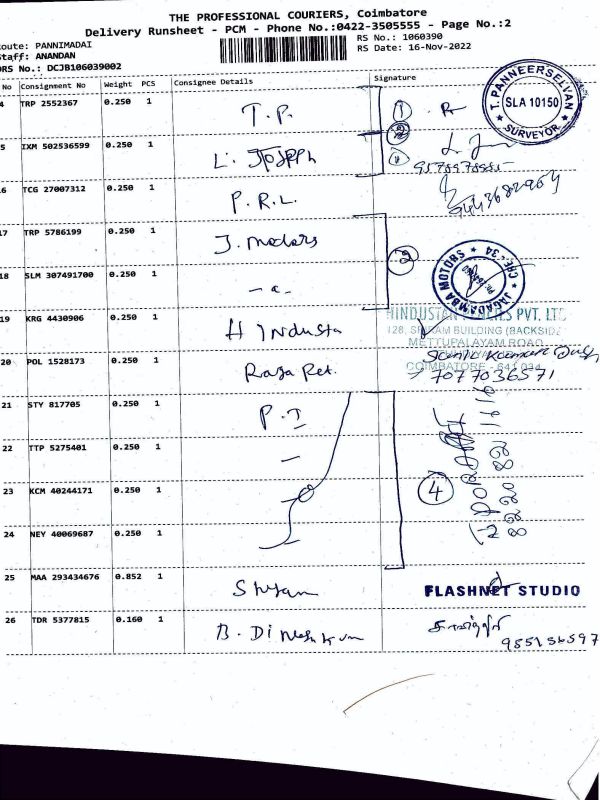 THE PROFESSIONAL COURIERS, Coimbatore
Delivery Runsheet - PCM - Phone No.:0422-3505555 - Page No.:2
oute: PANNIMADAI
Staff: ANANDAN
DRS No.: DCJB106039002
RS No.: 1060390
RS Date: 16-Nov-2022
Consignment No Weight PCS Consignee Details Signature
4 TRP 2552367 0.250 1 T.P.
5 IXM 502536599 0.250 1 L. Joseph
6 TCG 27007312 0.250 1 P.R.L.
17 TRP 5786199 0.250 1 J. Motors
18 SLM 307491700 0.250 1 - a -
19 KRG 4430906 0.250 1 Hindusta
20 POL 1528173 0.250 1 Raja Ret.
21 STY 817705 0.250 1 P.I
22 TTP 5275401 0.250 1
23 KCM 40244171 0.250 1
24 NEY 40069687 0.250 1
25 MAA 293434676 0.852 1 Shyam
26 TDR 5377815 0.160 1 B. Dinesh kum
T. PANNEERSELVAN
SLA 10150
SURVEYOR
1
2
JAGADAMBA MOTORS
HINDUSTAN PVT. LTD
128, SRIRAM BUILDING (BACKSIDE
METTUPALAYAM ROAD
COIMBATORE - 641 034
7077036571
4
FLASHNET STUDIO